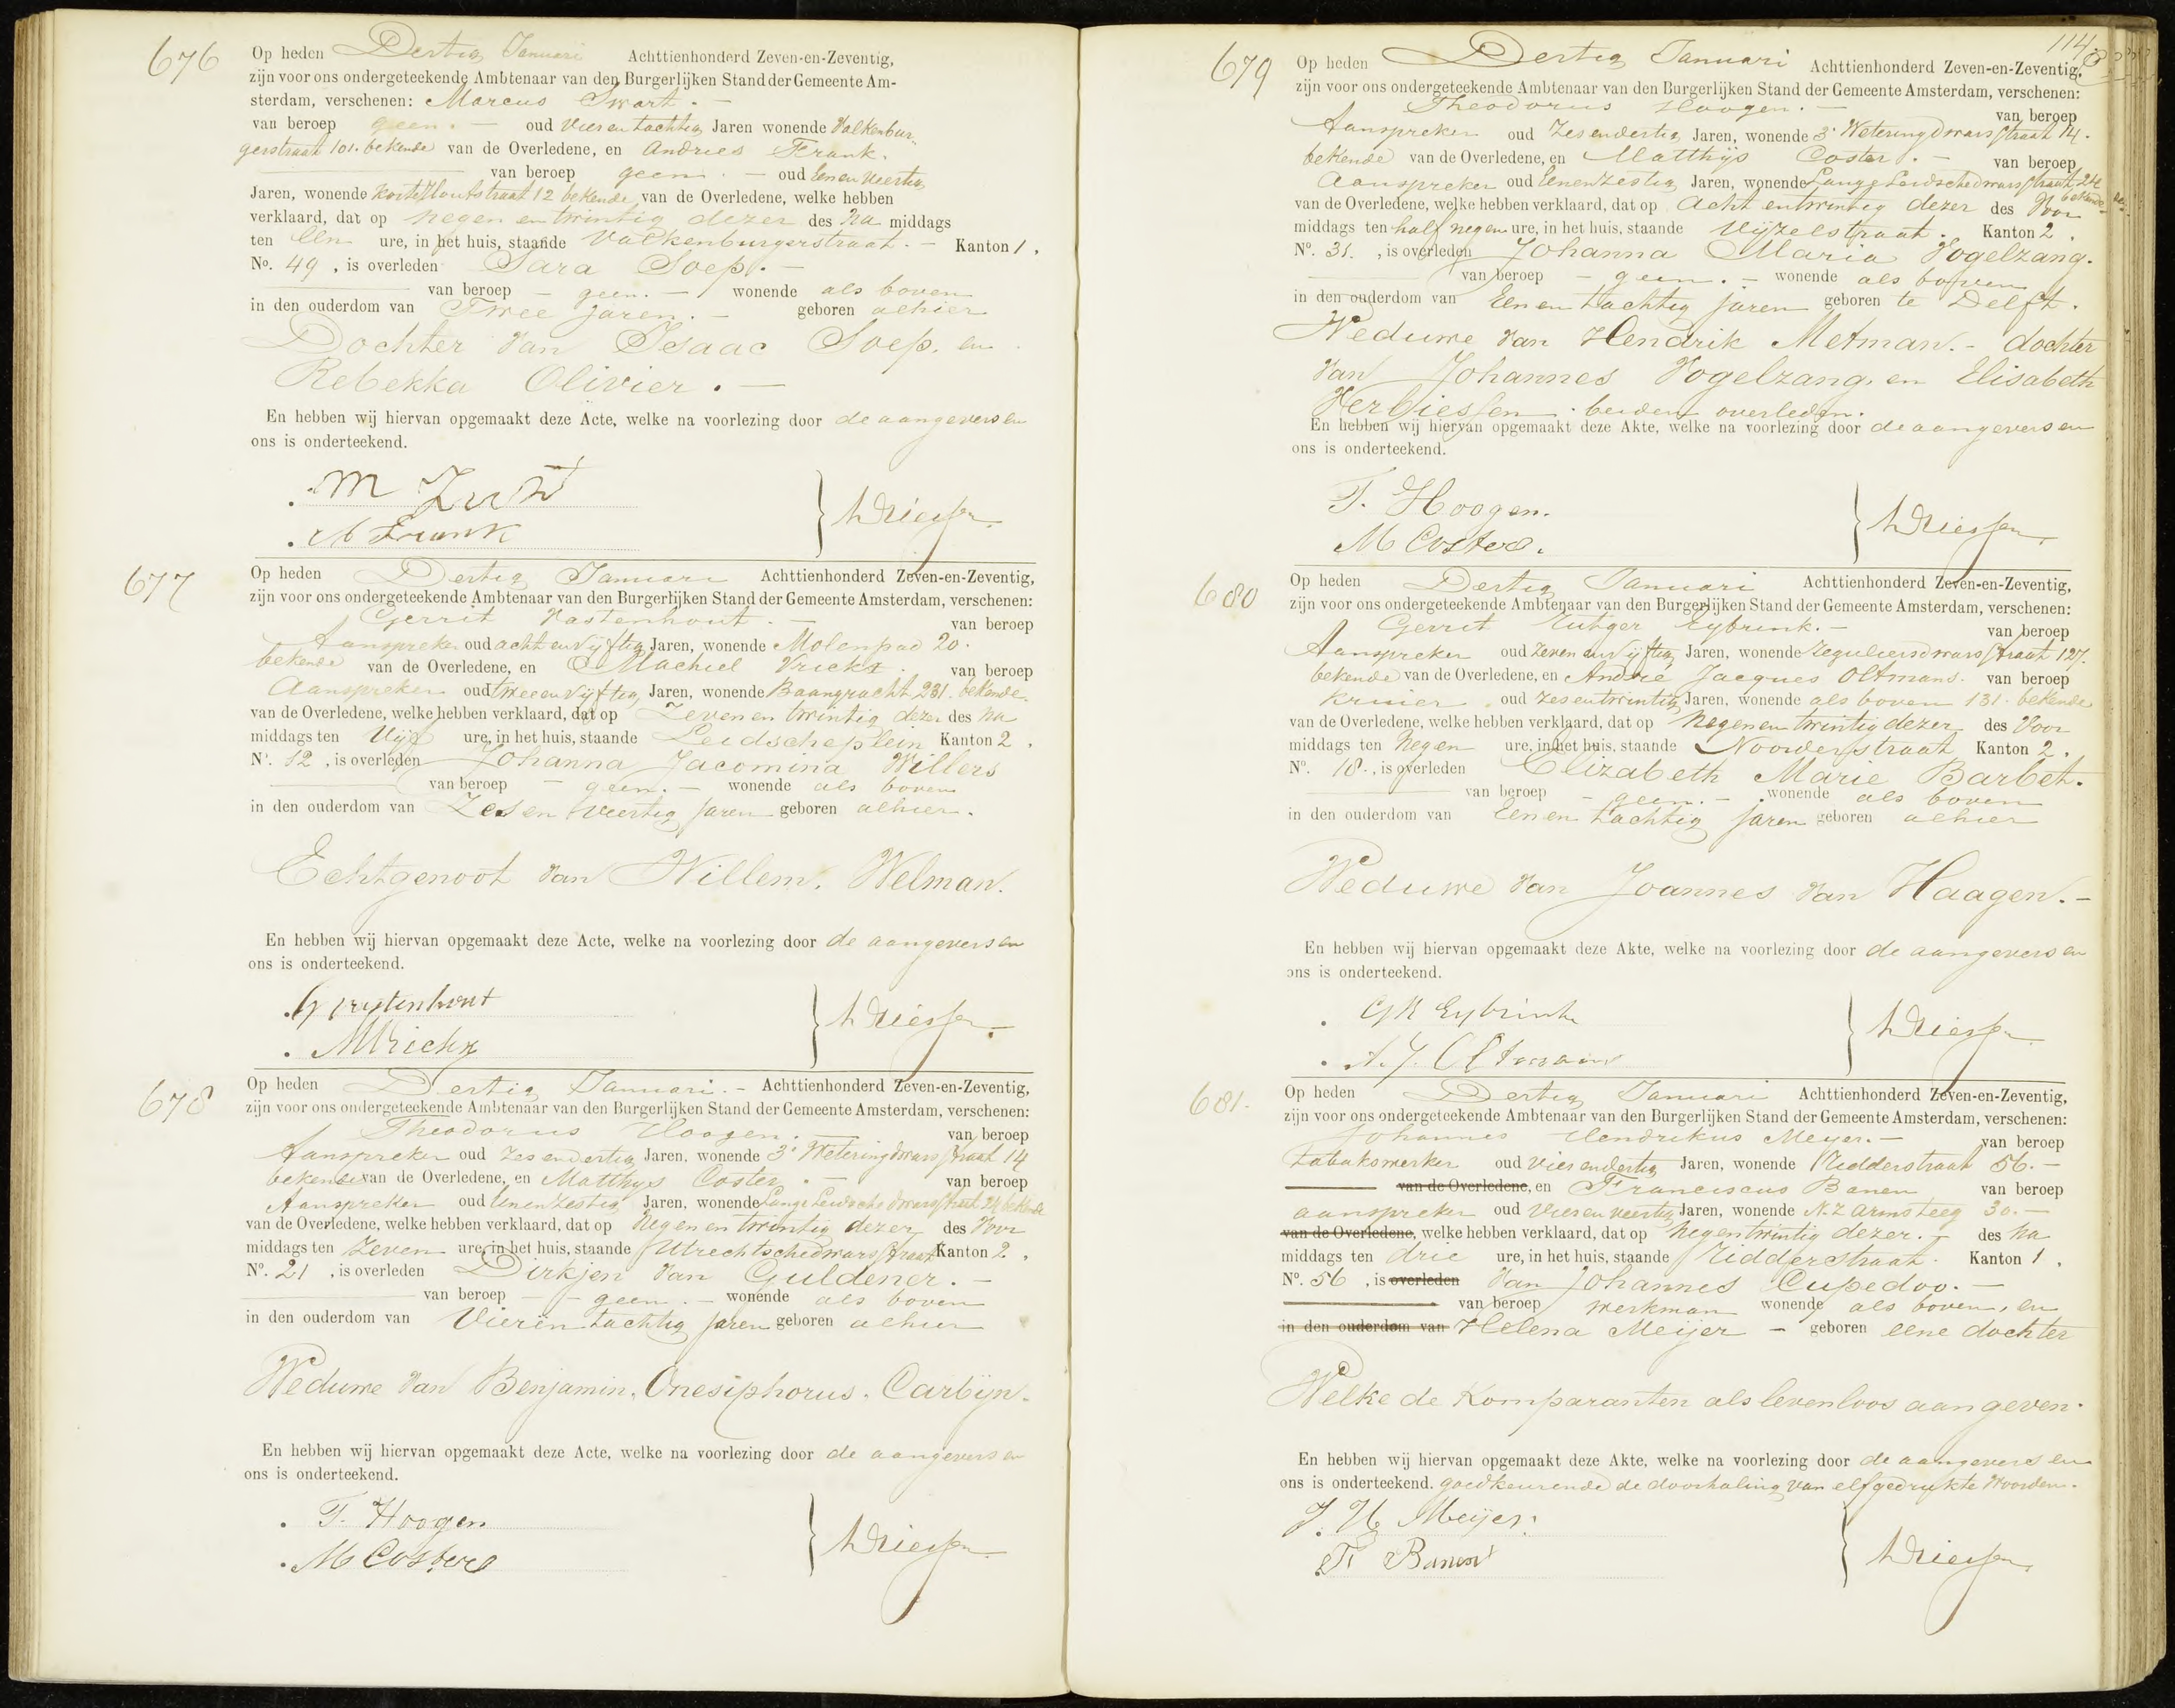 676
Op heden Dertig Januari Achttienhonderd Zeven-en-Zeventig,
zijn voor ons ondergeteekende Ambtenaar van den Burgerlijken Stand der Gemeente Am-
sterdam, verschenen: Marcus Swart. —
van beroep geen. — oud Vier en tachtig Jaren wonende Valkenbur-
gerstraat 101. bekende van de Overledene, en Andries Frank.
van beroep geen. — oud Een en Veertig
Jaren, wonende Korte Houtstraat 12 bekende van de Overledene, welke hebben
verklaard, dat op negen en twintig dezer des Na middags
ten Een ure, in het huis, staande Valkenburgerstraat. — Kanton 1.
No. 49, is overleden Sara Soep. —
van beroep — geen. — wonende als boven
in den ouderdom van Twee Jaren. — geboren alhier
Dochter van Isaac Soep. en
Rebekka Olivier. —
En hebben wij hiervan opgemaakt deze Acte, welke na voorlezing door de aangevers en
ons is onderteekend.
M Zwart
A Frank
ADriessen
677
Op heden Dertig Januari Achttienhonderd Zeven-en-Zeventig,
zijn voor ons ondergeteekende Ambtenaar van den Burgerlijken Stand der Gemeente Amsterdam, verschenen:
Gerrit Vastenhout. — van beroep
Aanspreker oud acht en Vijftig Jaren, wonende Molenpad 20.
bekende van de Overledene, en Machiel Vrickx. van beroep
Aanspreker oud twee en Vijftig Jaren, wonende Baangracht 231. bekende
van de Overledene, welke hebben verklaard, dat op Zeven en twintig dezer des Na
middags ten Vijf ure, in het huis, staande Leidscheplein Kanton 2.
No. 12, is overleden Johanna Jacomina Willers
van beroep — geen. — wonende als boven
in den ouderdom van Zes en Veertig Jaren geboren alhier.
Echtgenoot van Willem. Welman.
En hebben wij hiervan opgemaakt deze Acte, welke na voorlezing door de aangevers en
ons is onderteekend.
G Vastenhout
MVrickx
ADriessen
678
Op heden Dertig Januari. — Achttienhonderd Zeven-en-Zeventig,
zijn voor ons ondergeteekende Ambtenaar van den Burgerlijken Stand der Gemeente Amsterdam, verschenen:
Theodorus Hoogen. — van beroep
Aanspreker oud Zes en dertig Jaren, wonende 3e Weteringdwarsstraat 14
bekende van de Overledene, en Matthys Coster. — van beroep
Aanspreker oud Een en Zestig Jaren, wonende Lange Leidsche dwarsstraat 24 bekende
van de Overledene, welke hebben verklaard, dat op Negen en twintig dezer des Voor
middags ten Zeven ure, in het huis, staande Utrechtschedwarsstraat Kanton 2.
No. 21, is overleden Dirkjen van Guldener. —
van beroep — geen. — wonende als boven
in den ouderdom van Vier en tachtig Jaren geboren alhier
Weduwe van Benjamin. Onesiphorus. Carlijn.
En hebben wij hiervan opgemaakt deze Acte, welke na voorlezing door de aangevers en
ons is onderteekend.
T. Hoogen
M Coster
ADriessen
114
679
Op heden Dertig Januari Achttienhonderd Zeven-en-Zeventig,
zijn voor ons ondergeteekende Ambtenaar van den Burgerlijken Stand der Gemeente Amsterdam, verschenen:
Theodorus Hoogen. — van beroep
Aanspreker oud Zes en dertig Jaren, wonende 3e Weteringdwarsstraat 14.
bekende van de Overledene, en Matthijs Coster. — van beroep
Aanspreker oud Een en Zestig Jaren, wonende Lange Leidschedwarsstraat 24 bekende
van de Overledene, welke hebben verklaard, dat op Acht en twintig dezer des Voor
middags ten half negen ure, in het huis, staande Vijzelstraat. Kanton 2.
No. 31., is overleden Johanna Maria Vogelzang.
van beroep — geen. — wonende als boven
in den ouderdom van Een en tachtig Jaren geboren te Delft.
Weduwe van Hendrik Metman. — dochter
van Johannes Vogelzang. en Elisabeth
Verbiessen. beiden overleden.
En hebben wij hiervan opgemaakt deze Akte, welke na voorlezing door de aangevers en
ons is onderteekend.
T. Hoogen.
M Coster.
ADriessen
680
Op heden Dertig Januari Achttienhonderd Zeven-en-Zeventig,
zijn voor ons ondergeteekende Ambtenaar van den Burgerlijken Stand der Gemeente Amsterdam, verschenen:
Gerrit Rutger Eybrink. — van beroep
Aanspreker oud Zeven en Vijftig Jaren, wonende Reguliersdwarsstraat 127.
bekende van de Overledene, en André Jacques Oltmans. van beroep
Kruier oud Zes en twintig Jaren, wonende als boven 131. bekende
van de Overledene, welke hebben verklaard, dat op Negen en twintig dezer des Voor
middags ten Negen ure, in het huis, staande Noorderstraat Kanton 2.
No. 18., is overleden Elizabeth Marie Barbet.
van beroep — geen. — wonende als boven
in den ouderdom van Een en tachtig Jaren geboren alhier
Weduwe van Joannes van Haagen. —
En hebben wij hiervan opgemaakt deze Akte, welke na voorlezing door de aangevers en
ons is onderteekend.
GR Eybrink
A. J. Oltmans
ADriessen
681.
Op heden Dertig Januari Achttienhonderd Zeven-en-Zeventig,
zijn voor ons ondergeteekende Ambtenaar van den Burgerlijken Stand der Gemeente Amsterdam, verschenen:
Johannes Hendrikus Meijer. — van beroep
tabakswerker oud Vier en dertig Jaren, wonende Ridderstraat 56. —
van de Overledene, en Franciscus Banen van beroep
aanspreker oud Vier en veertig Jaren, wonende N.Z Armsteeg 30. —
van de Overledene, welke hebben verklaard, dat op Negentwintig dezer. — des Na
middags ten drie ure, in het huis, staande Ridderstraat. Kanton 1.
No. 56, is overleden van Johannes Cupedoo. —
van beroep werkman wonende als boven, en
in den ouderdom van Helena Meijer — geboren eene dochter
Welke de Komparanten als levenloos aangeven.
En hebben wij hiervan opgemaakt deze Akte, welke na voorlezing door de aangevers en
ons is onderteekend. goedkeurende de doorhaling van elf gedrukte Woorden.
J. H Meijer.
F Banen
ADriessen